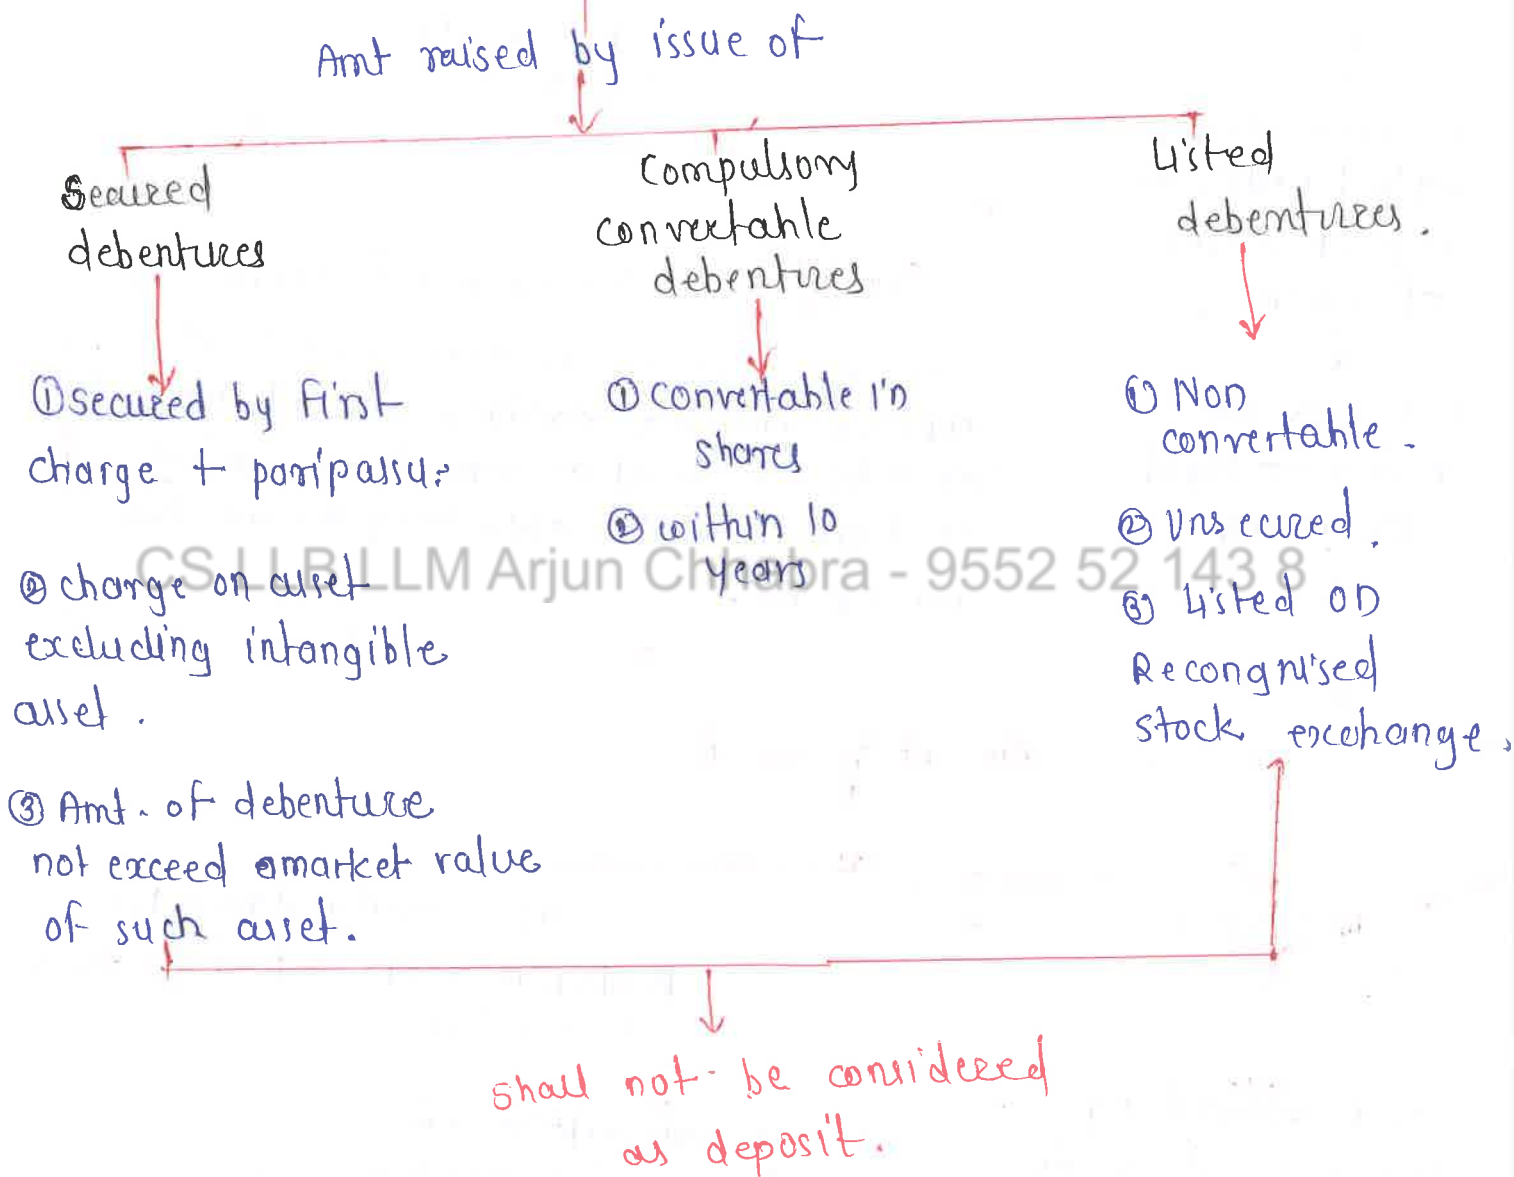 Amt raised by issue of
Secured
debentures
①secured by first
charge + paripassu.
② charge on asset
excluding intangible
asset.
③ Amt. of debenture
not exceed market value
of such asset.
Compulsory
convertable
debentures
① convertable in
shares
② within 10
years
Listed
debentures.
① Non
convertable.
② Unsecured.
③ Listed on
Recongnised
stock excehange.
CS LLB LLM Arjun Chhabra - 9552 52 143 8
shall not be considered
as deposit.